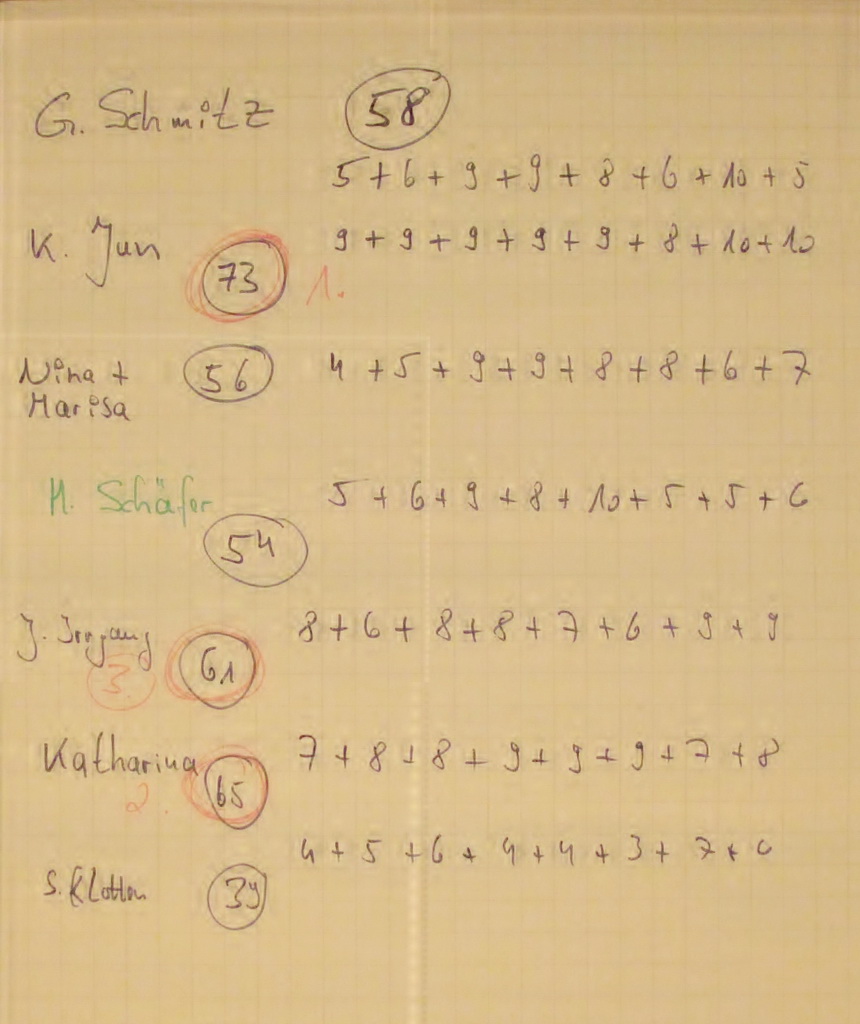 G. Schmitz 58
5 + 6 + 9 + 9 + 8 + 6 + 10 + 5
K. Jun 9 + 9 + 9 + 9 + 9 + 8 + 10 + 10
73 1.
Nina + 56 4 + 5 + 9 + 9 + 8 + 8 + 6 + 7
Marisa
M. Schäfer 5 + 6 + 9 + 8 + 10 + 5 + 5 + 6
54
J. Irrgang 8 + 6 + 8 + 8 + 7 + 6 + 9 + 9
3. 61
Katharina 7 + 8 + 8 + 9 + 9 + 9 + 7 + 8
2. 65
4 + 5 + 6 + 4 + 4 + 3 + 7 + 6
S. Klotten 39